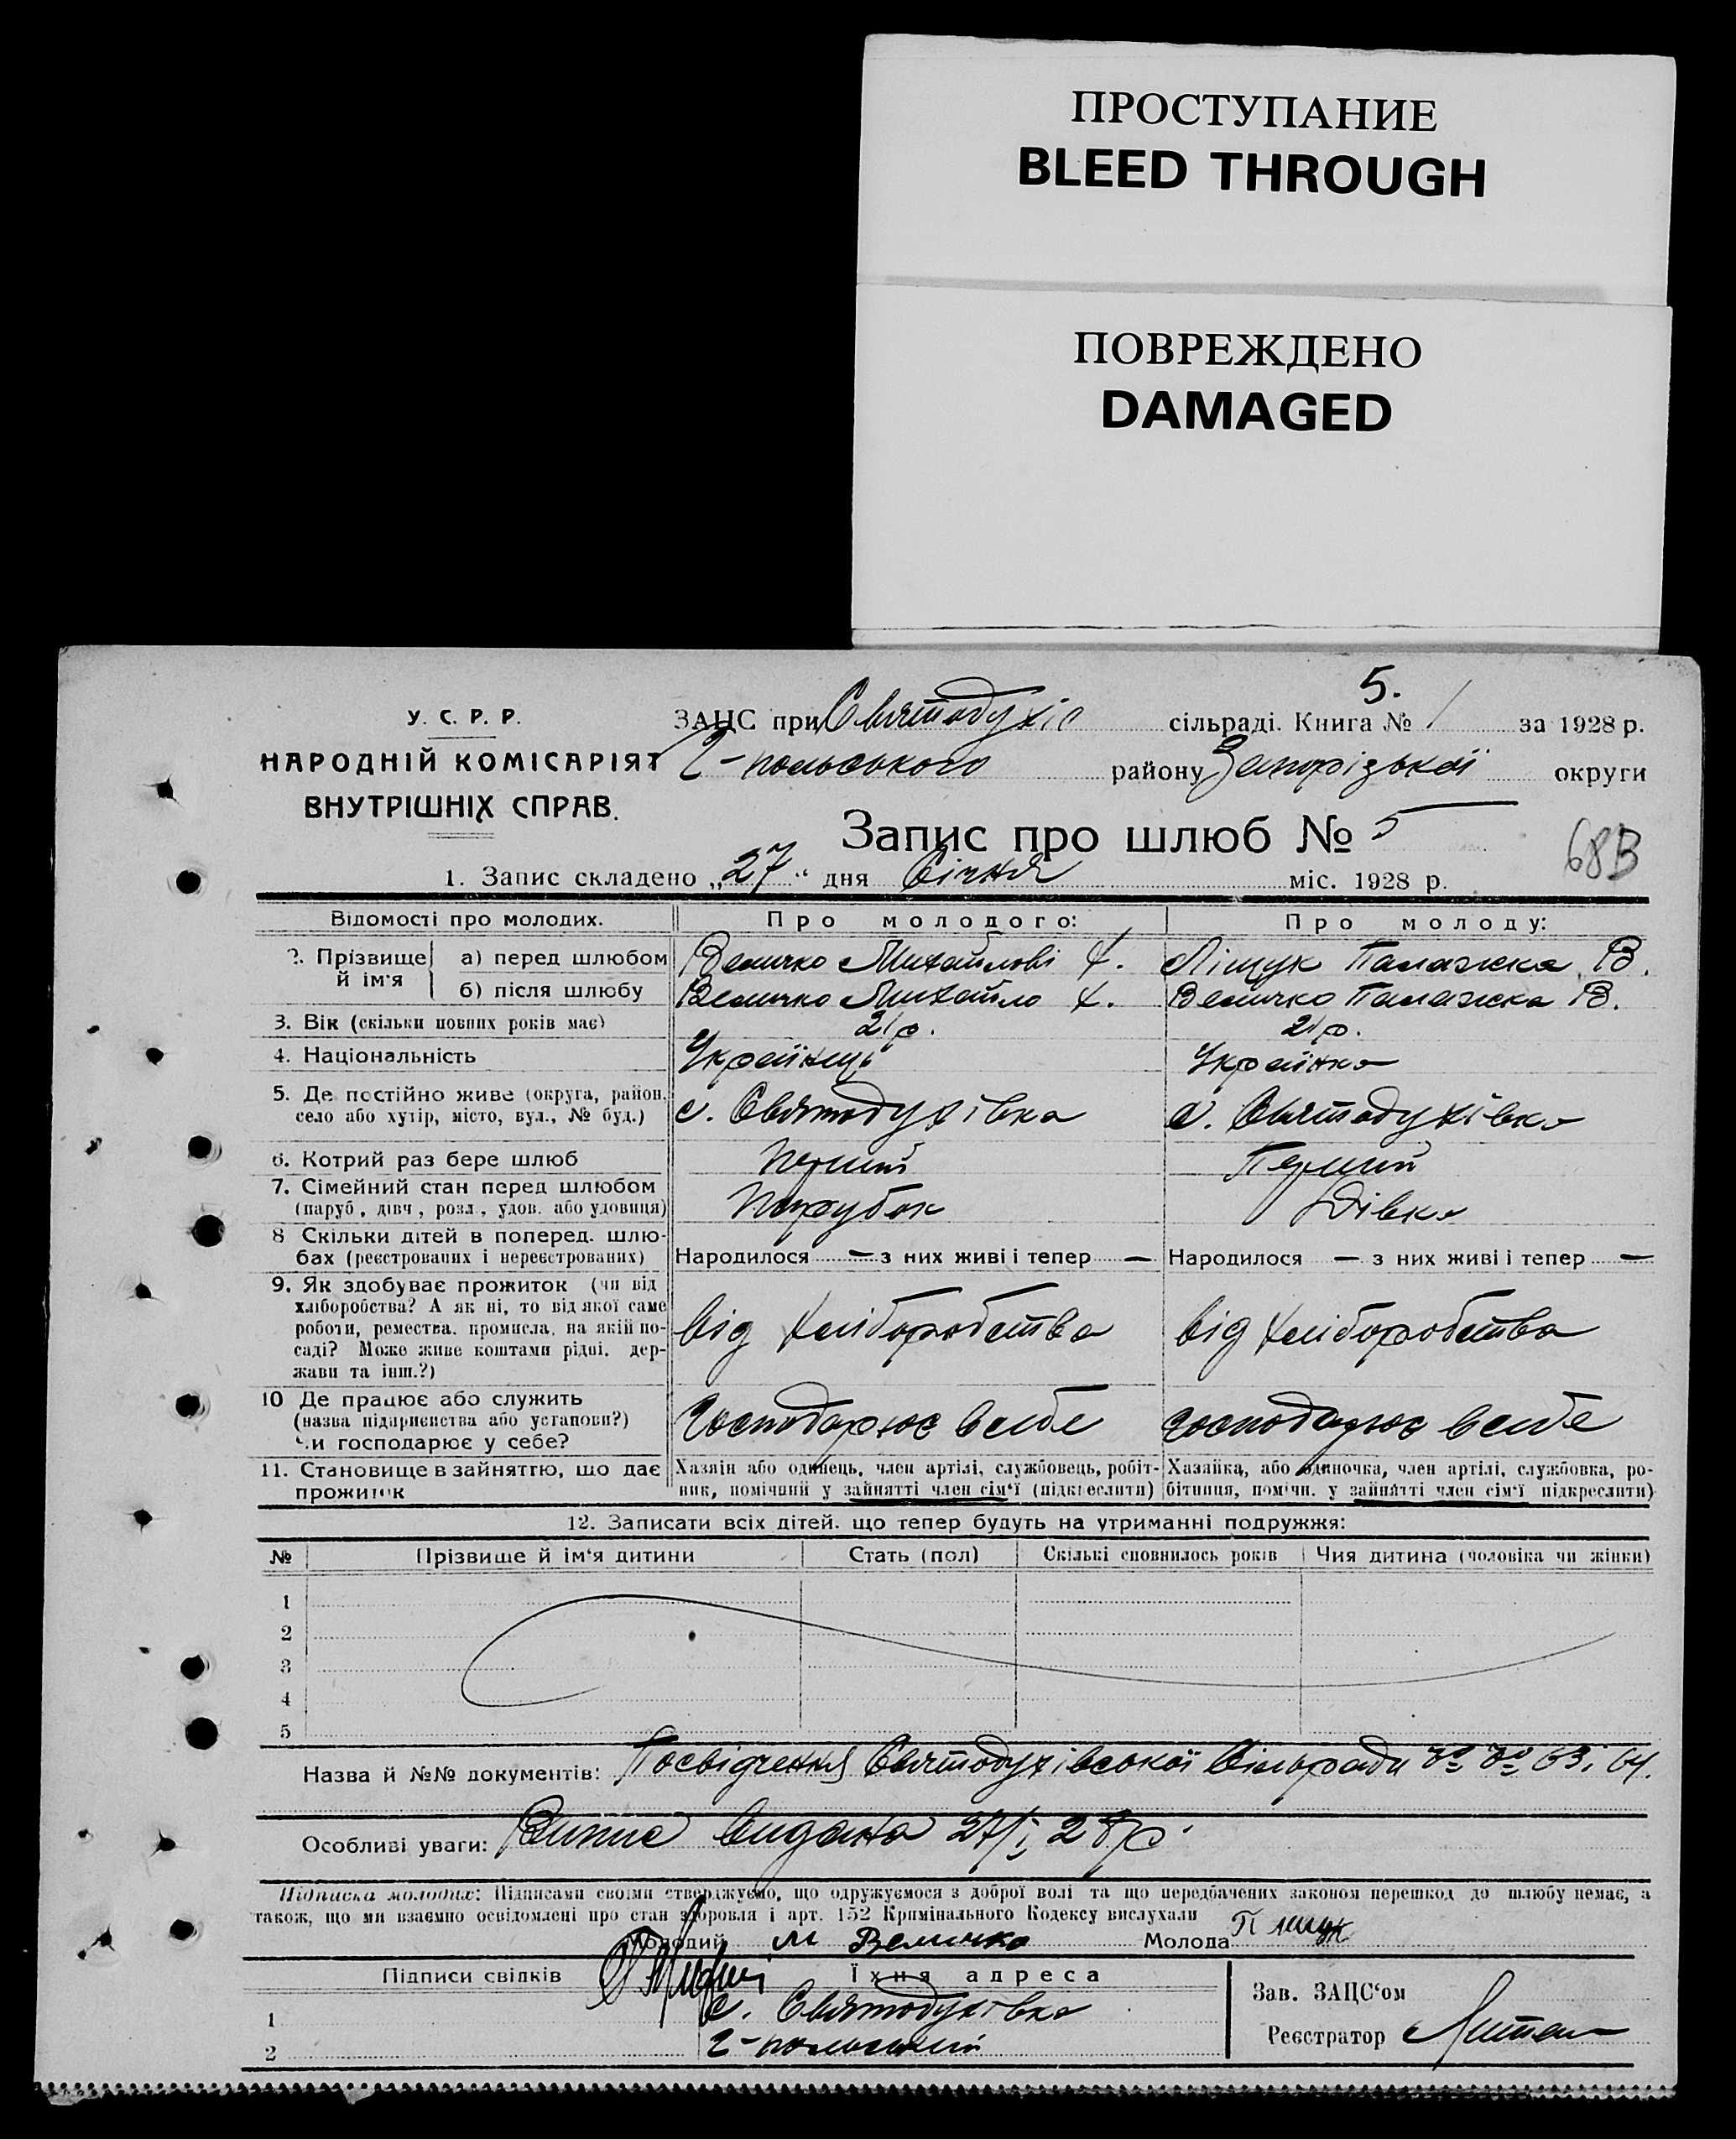 ПРОСТУПАНИЕ
BLEED THROUGH
ПОВРЕЖДЕНО
DAMAGED
5.
У. С. Р. Р.
НАРОДНІЙ КОМІСАРІЯТ
ВНУТРІШНІХ СПРАВ.
ЗАЦС при Святодухів сільраді. Книга № 1 за 1928 р.
Г-польського району Запорізької округи
Запис про шлюб № 5
68В
1. Запис складено „27“ дня Січня міс. 1928 р.
Відомості про молодих. Про молодого: Про молоду:
2. Прізвище й ім'я а) перед шлюбом Величко Михайлові Х. Ліщук Палажка В.
б) після шлюбу Величко Михайло Х. Величко Палажка В.
3. Вік (скільки повних років має) 21 р. 21 р.
4. Національність Українець Українка
5. Де постійно живе (округа, район,
село або хутір, місто, вул., № буд.) с. Святодухівка с. Святодухівка
6. Котрий раз бере шлюб Перший Перший
7. Сімейний стан перед шлюбом
(паруб., дівч., розл., удов. або удовиця) Парубок Дівка
8 Скільки дітей в поперед. шлю-
бах (реєстрованих і нереєстрованих) Народилося — з них живі і тепер — Народилося — з них живі і тепер —
9. Як здобуває прожиток (чи від
хліборобства? А як ні, то від якої саме
роботи, ремества, промисла, на якій по-
саді? Може живе коштами рідні, дер-
жави та інш.?) від хліборобства від хліборобства
10 Де працює або служить
(назва підприємства або установи?)
чи господарює у себе? Господарює в себе господарює в себе
11. Становище в зайняттю, що дає
прожиток
Хазяін або одинець, член артілі, службовець, робіт-
ник, помічний у зайнятті член сім'ї (підкреслити)
Хазяйка, або одиночка, член артілі, службовка, ро-
бітниця, помічн. у зайнятті член сім'ї підкреслити)
12. Записати всіх дітей, що тепер будуть на утриманні подружжя:
№ Прізвище й ім'я дитини Стать (пол) Скількі сповнилось років Чия дитина (чоловіка чи жінки)
1
2
3
4
5
Назва й №№ документів: Посвідчення Святодухівської Сільради №№ 63 і 64.
Особливі уваги: Випис видана 27/I 28 р.
Підписка молодих: Підписами своїми стверджуємо, що одружуємося з доброї волі та що передбачених законом перешкод до шлюбу немає, а
також, що ми взаємно освідомлені про стан здоровля і арт. 152 Кримінального Кодексу вислухали
Молодий М Величко Молода
Підписи свідків Їхня адреса
1 с. Святодухівка
2 Г-польський
Зав. ЗАЦС'ом
Реєстратор